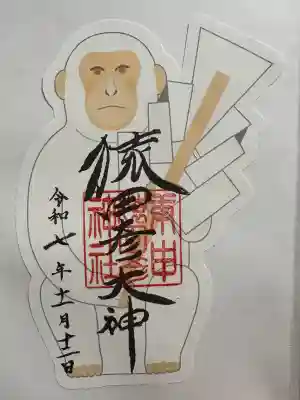 猿田彦大神
神社
令和七年十一月十二日